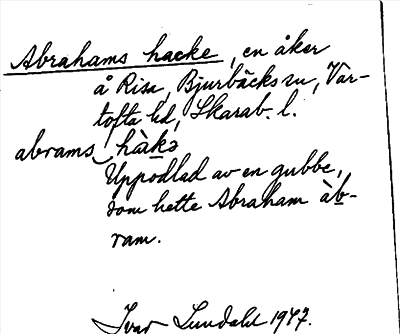 Abrahams hacke, en åker
å Risa, Bjurbäcks sn, Var-
tofta hd, Skarab. l.
abrams hàkə
Uppodlad av en gubbe,
som hette Abraham àb-
ram.
Ivar Lundahl 1947.